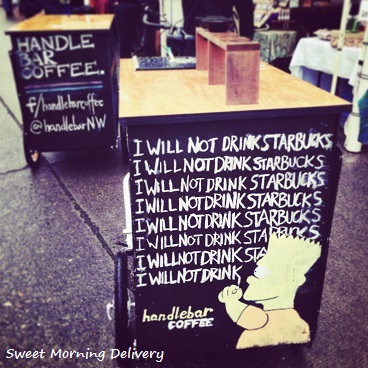 HANDLE
BAR
COFFEE.
f/handlebarcoffee
@handlebarNW
I WILL NOT DRINK STARBUCKS
I WILL NOT DRINK STARBUCKS
I WILL NOT DRINK STARBUCKS
I WILL NOT DRINK STARBUCKS
I WILL NOT DRINK STARBUCKS
I WILL NOT DRINK STARB
I WILL NOT DRINK STA
I WILL NOT DRINK
handlebar
COFFEE
Sweet Morning Delivery